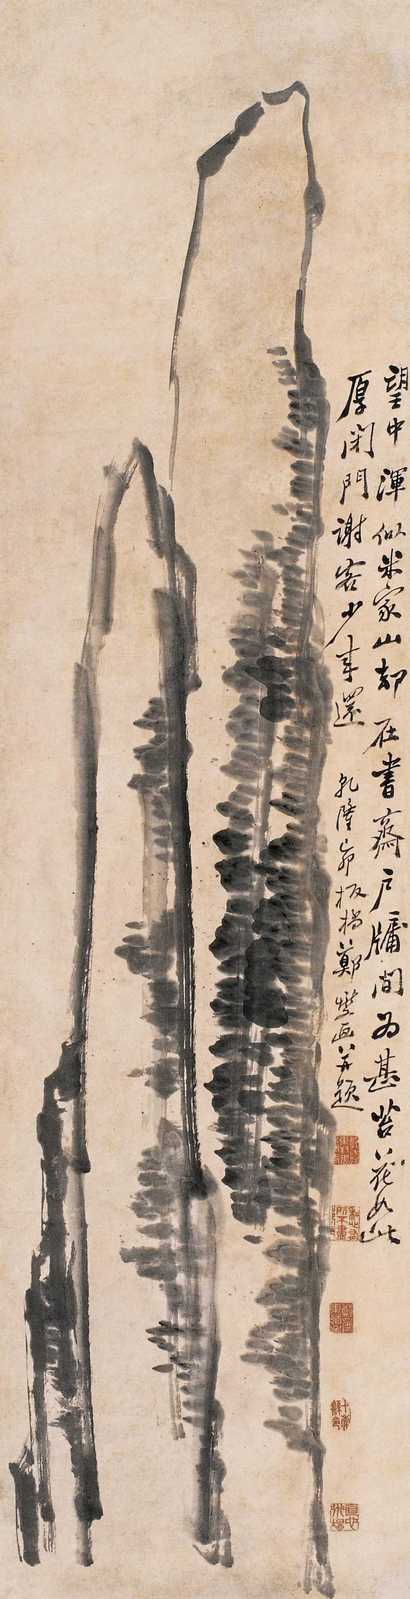 望中渾似米家山却在書齋戶牖間為甚苔花如此
厚閉門謝客少車還
乾隆己卯板橋鄭燮画并題